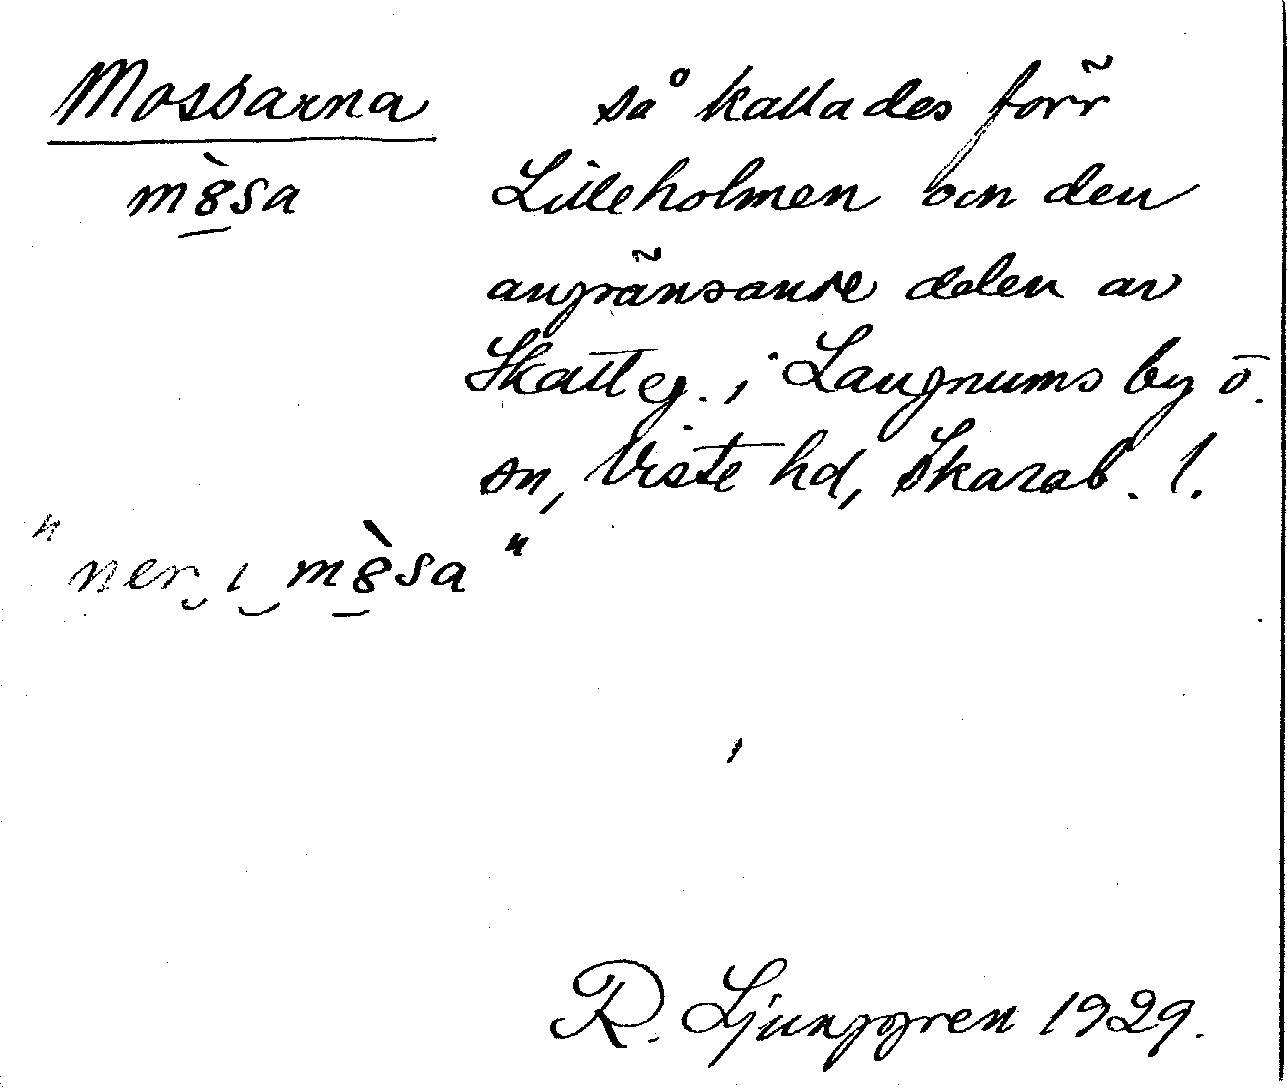 Mossarna så kallades förr
mòsa Lilleholmen och den
angränsande delen av
Skatteg. i Laugnums by o.
sn, Viste hd, Skarab. l.
"ner i mòsa"
R. Ljunggren 1929.